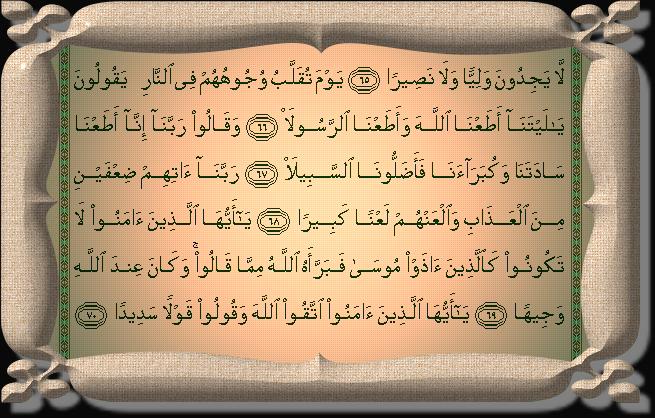 لَّا يَجِدُونَ وَلِيًّا وَلَا نَصِيرًا ٦٥ يَوْمَ تُقَلَّبُ وُجُوهُهُمْ فِى ٱلنَّارِ يَقُولُونَ
يَـٰلَيْتَنَآ أَطَعْنَا ٱللَّهَ وَأَطَعْنَا ٱلرَّسُولَا۠ ٦٦ وَقَالُوا۟ رَبَّنَآ إِنَّآ أَطَعْنَا
سَادَتَنَا وَكُبَرَآءَنَا فَأَضَلُّونَا ٱلسَّبِيلَا۠ ٦٧ رَبَّنَآ ءَاتِهِمْ ضِعْفَيْنِ
مِنَ ٱلْعَذَابِ وَٱلْعَنْهُمْ لَعْنًا كَبِيرًا ٦٨ يَـٰٓأَيُّهَا ٱلَّذِينَ ءَامَنُوا۟ لَا
تَكُونُوا۟ كَٱلَّذِينَ ءَاذَوْا۟ مُوسَىٰ فَبَرَّأَهُ ٱللَّهُ مِمَّا قَالُوا۟ ۚ وَكَانَ عِندَ ٱللَّهِ
وَجِيهًا ٦٩ يَـٰٓأَيُّهَا ٱلَّذِينَ ءَامَنُوا۟ ٱتَّقُوا۟ ٱللَّهَ وَقُولُوا۟ قَوْلًا سَدِيدًا ٧٠